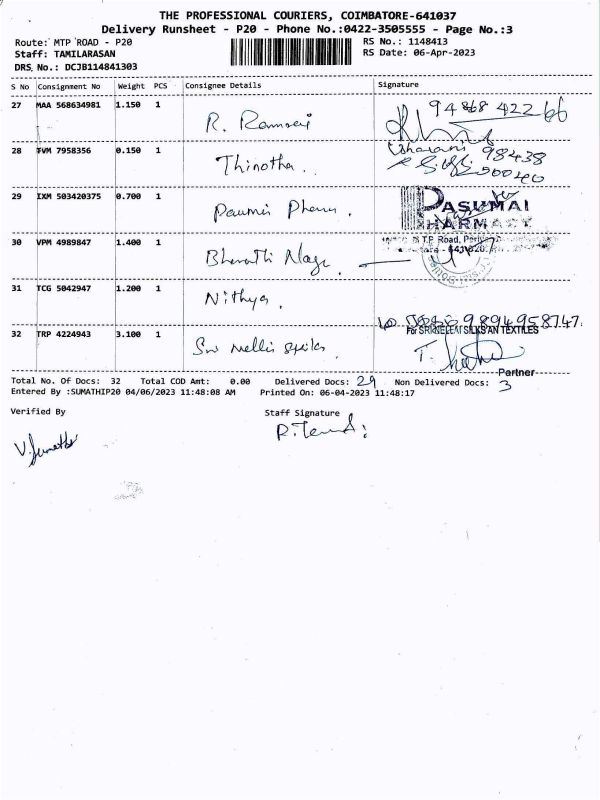 THE PROFESSIONAL COURIERS, COIMBATORE-641037
Delivery Runsheet - P20 - Phone No.:0422-3505555 - Page No.:3
Route: MTP ROAD - P20
RS No.: 1148413
Staff: TAMILARASAN
RS Date: 06-Apr-2023
DRS. No.: DCJB114841303
S No Consignment No Weight PCS Consignee Details Signature
27 MAA 568634981 1.150 1 R.
94868 42266
28 FVM 7958356 0.150 1 Thinotha
98438
29 IXM 503420375 0.700 1
PASUMAI
PHARMACY
30 VPM 4989847 1.400 1 Bharathi Nage
T.P. Road,
31 TCG 5042947 1.200 1 Nithya.
9894958747
32 TRP 4224943 3.100 1 Sri
For SRI NELLAI SILKS AN TEXTILES
T.
Partner
Total No. Of Docs: 32 Total COD Amt: 0.00 Delivered Docs: 29 Non Delivered Docs: 3
Entered By :SUMATHIP20 04/06/2023 11:48:08 AM Printed On: 06-04-2023 11:48:17
Verified By Staff Signature